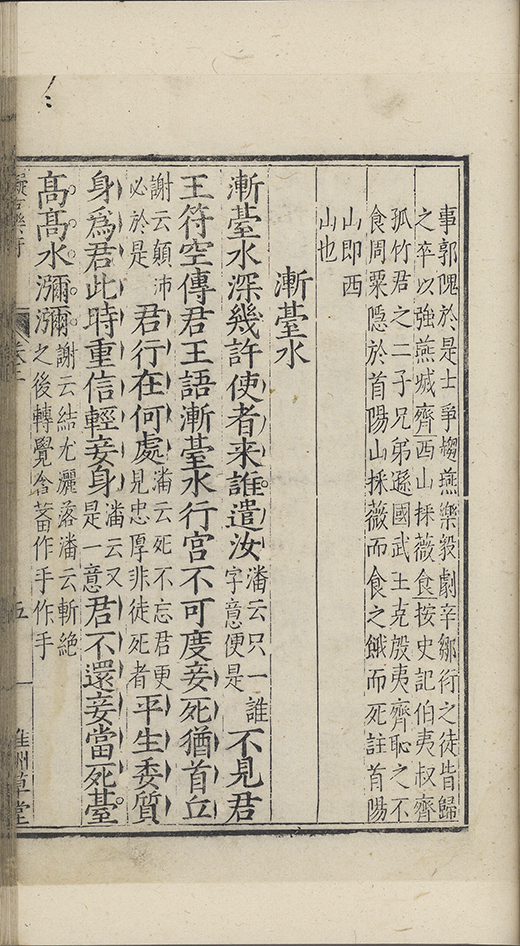 事郭隗於是士爭趨燕樂毅劇辛鄒衍之徒皆歸
之卒以強燕城齊西山採薇食按史記伯夷叔齊
孤竹君之二子兄弟遜國武王克殷夷齊恥之不
食周粟隱於首陽山採薇而食之餓而死註首陽
山即西
山也
漸臺水
漸臺水深幾許使者来誰遣汝潘云只一誰字意便是不見君
王符空傳君王語漸臺水行宫不可度妾死猶首丘
謝云顛沛必於是君行在何處潘云死不忘君更見忠厚非徒死者平生委質
身為君此時重信輕妾身潘云又是一意君不還妾當死臺
高高水瀰瀰謝云結尤灑落潘云斬絶之後轉覺含蓄作手作手
擬古樂府
卷上
五
惟洲草堂